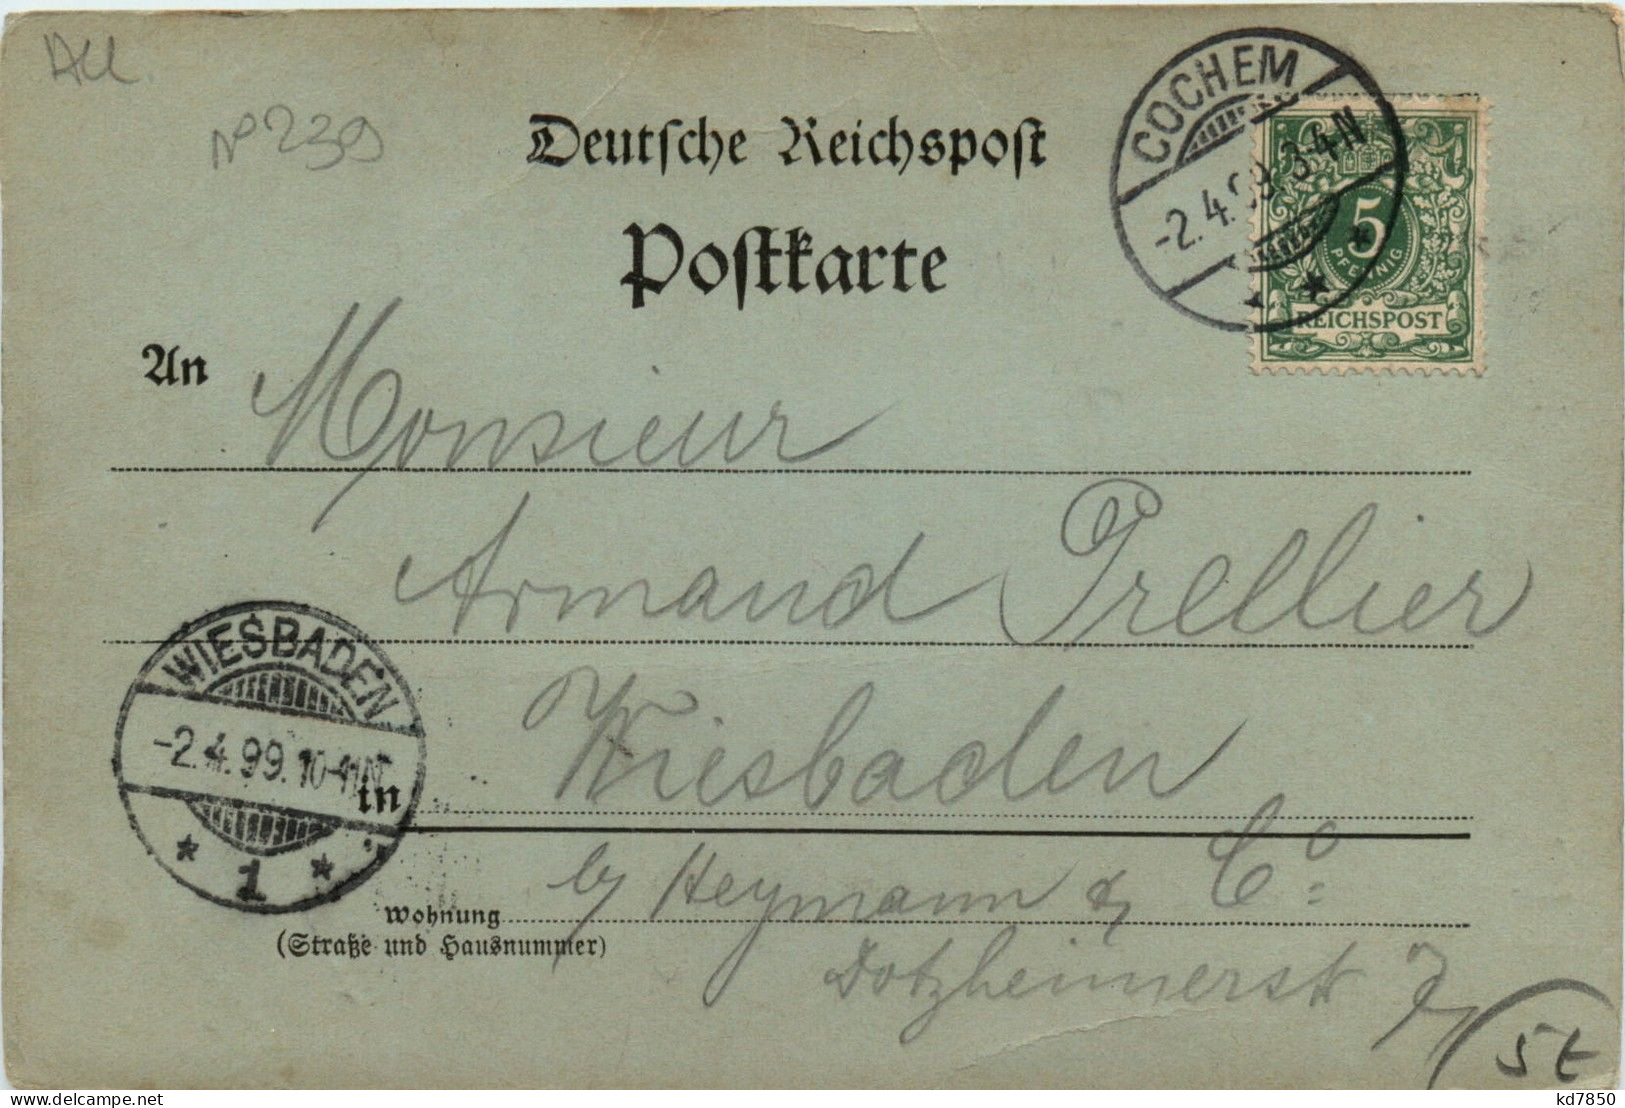 All
N° 239
Deutsche Reichspost
Postkarte
COCHEM
-2.4.99.3-4N
5
PFENNIG
REICHSPOST
An Monsieur
Armand Prellier
WIESBADEN
-2.4.99.10-11N
1
in Wiesbaden
by Heymann & C°:
Wohnung
(Straße und Hausnummer)
Dotzheimerstr 7
5t
kd7850